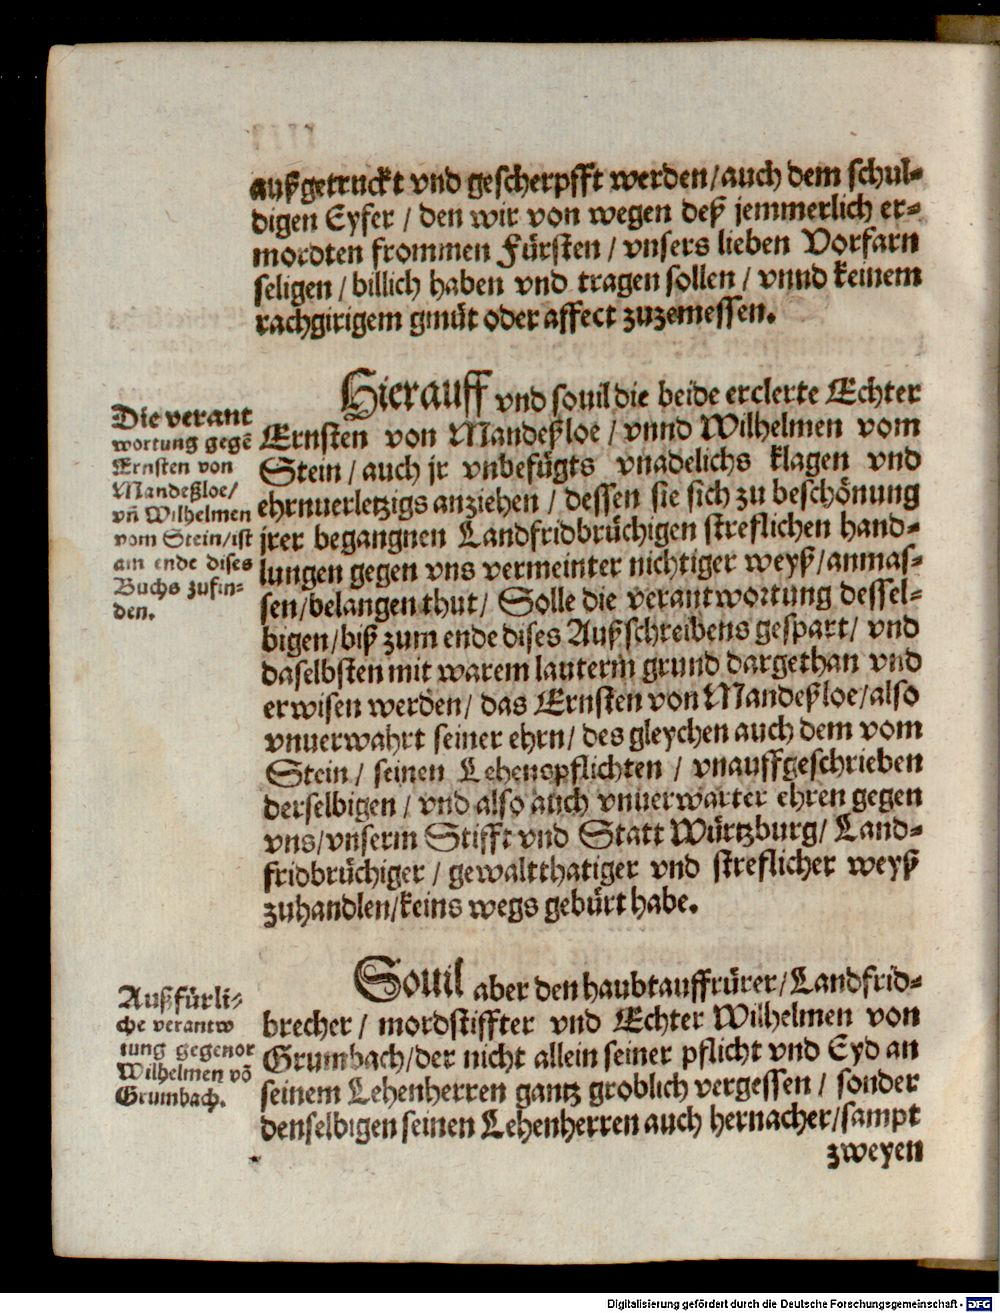 außgetruckt vnd gescherpfft werden/auch dem schul-
digen Eyfer / den wir von wegen deß jemmerlich er-
mordten frommen Fürsten / vnsers lieben Vorfarn
seligen / billich haben vnd tragen sollen / vnnd keinem
rachgirigem gmüt oder affect zuzemessen.
Hierauff vnd souil die beide erclerte Echter
Ernsten von Mandeßloe / vnnd Wilhelmen vom
Stein / auch jr vnbefügts vnadelichs klagen vnd
ehrnuerletzigs anziehen / dessen sie sich zu beschönung
jrer begangnen Landfridbrüchigen streflichen hand-
lungen gegen vns vermeinter nichtiger weyß/anmas-
sen/belangen thut/ Solle die verantwortung dessel-
bigen/biß zum ende dises Außschreibens gespart/ vnd
daselbsten mit warem lauterm grund dargethan vnd
erwisen werden/ das Ernsten von Mandeßloe/also
vnuerwahrt seiner ehrn/ des gleychen auch dem vom
Stein / seinen Lehenspflichten / vnauffgeschrieben
derselbigen / vnd also auch vnuerwarter ehren gegen
vns/vnserm Stifft vnd Statt Würtzburg/ Land-
fridbrüchiger / gewaltthatiger vnd streflicher weyß
zuhandlen/keins wegs gebürt habe.
Die verant
wortung gegẽ
Ernsten von
Mandeßloe/
vñ Wilhelmen
vom Stein/ist
am ende dises
Buchs zufin-
den.
Souil aber den haubtauffrürer/Landfrid-
brecher / mordstiffter vnd Echter Wilhelmen von
Grumbach/der nicht allein seiner pflicht vnd Eyd an
seinem Lehenherren gantz groblich vergessen / sonder
denselbigen seinen Lehenherren auch hernacher/sampt
zweyen
Außfürli-
che verantw
tung gegenor
Wilhelmen võ
Grumbach.
Digitalisierung gefördert durch die Deutsche Forschungsgemeinschaft - DFG